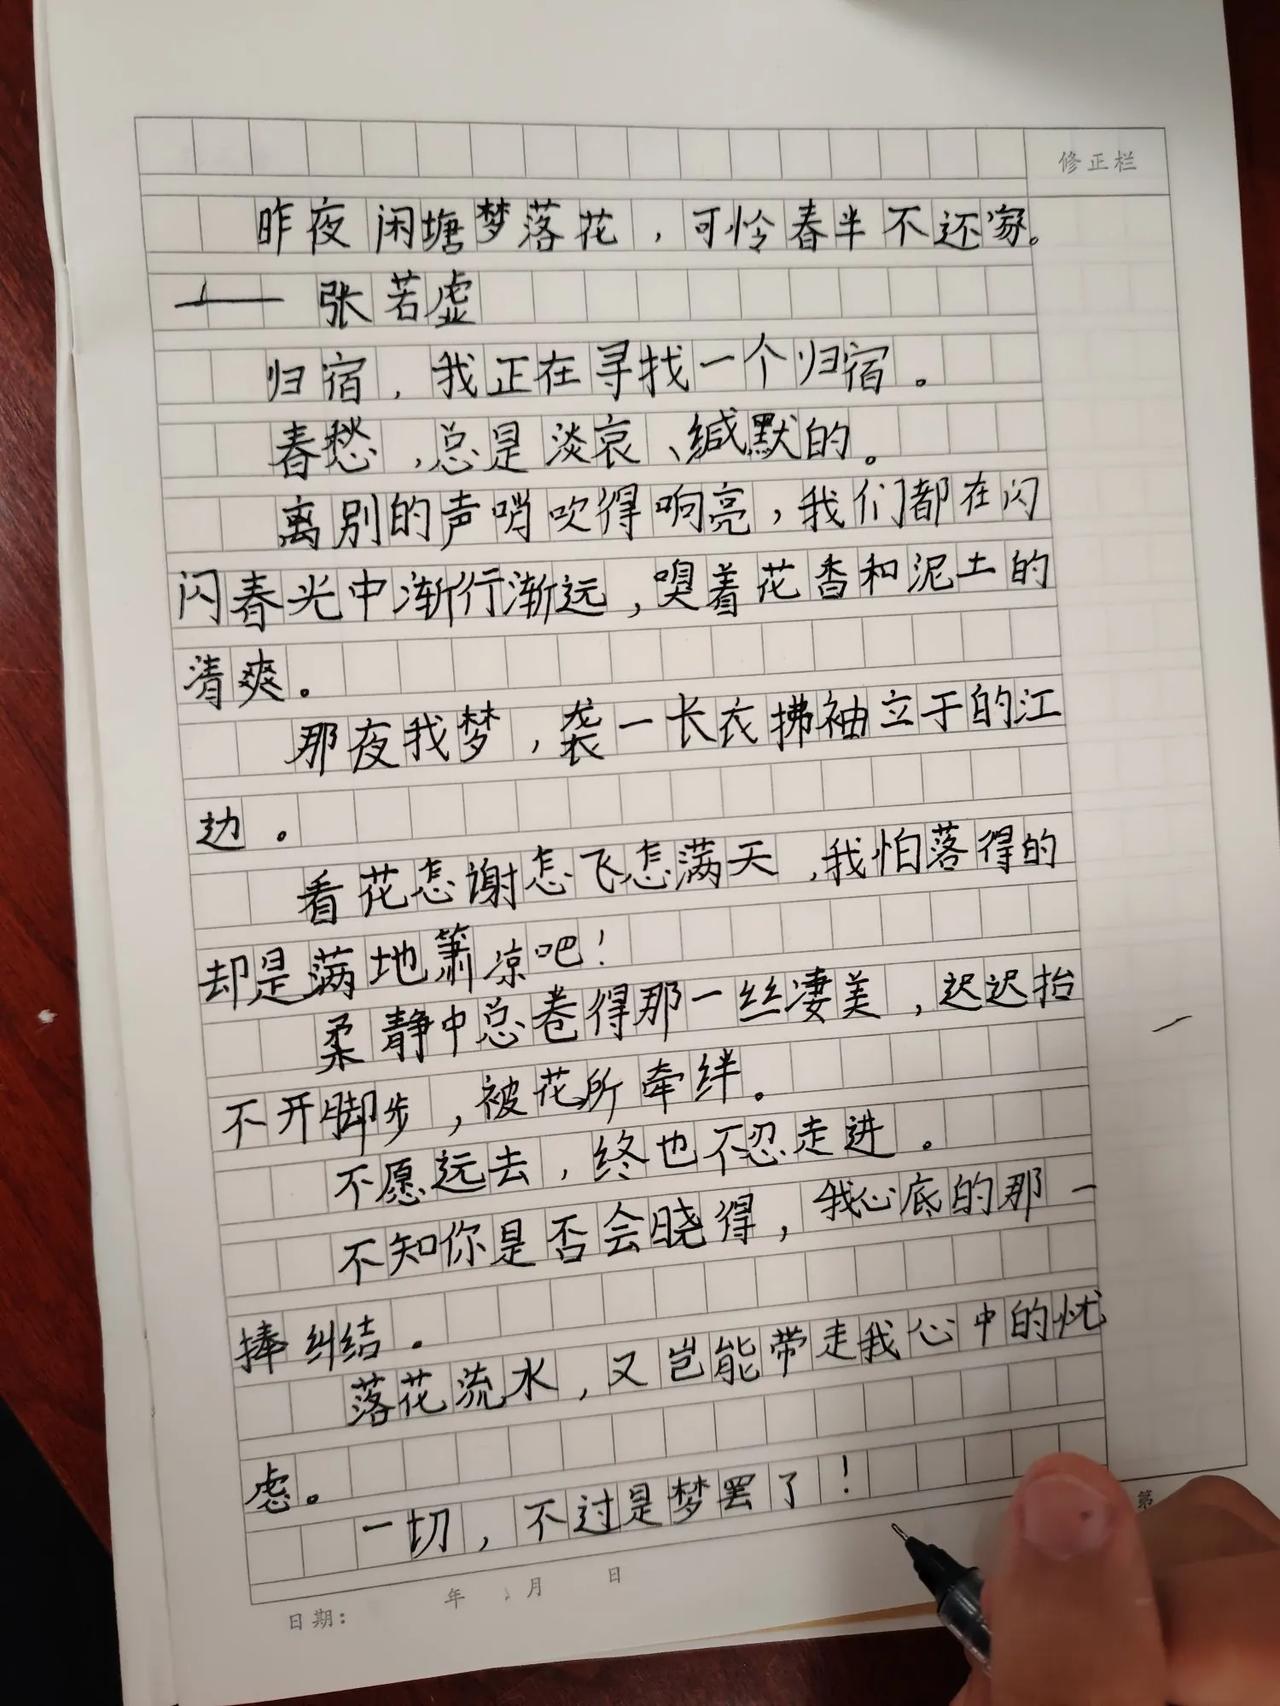 修正栏
昨夜闲塘梦落花，可怜春半不还家。
——张若虚
归宿，我正在寻找一个归宿。
春愁，总是淡哀、缄默的。
离别的声哨吹得响亮，我们都在闪
闪春光中渐行渐远，嗅着花香和泥土的
清爽。
那夜我梦，袭一长衣拂袖立于的江
边。
看花怎谢怎飞怎满天，我怕落得的
却是满地箫凉吧！
柔静中总卷得那一丝凄美，迟迟抬
不开脚步，被花所牵绊。
不愿远去，终也不忍走进。
不知你是否会晓得，我心底的那一
捧纠结。
落花流水，又岂能带走我心中的忧
虑。
一切，不过是梦罢了！
日期： 年 月 日
第